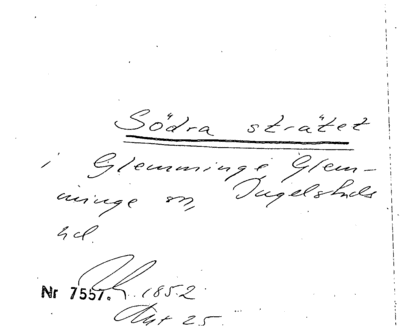 Södra strätet
i Glemminge Glem-
minge sn, Ingelstads
hd.
Nr 7557. 1852
25